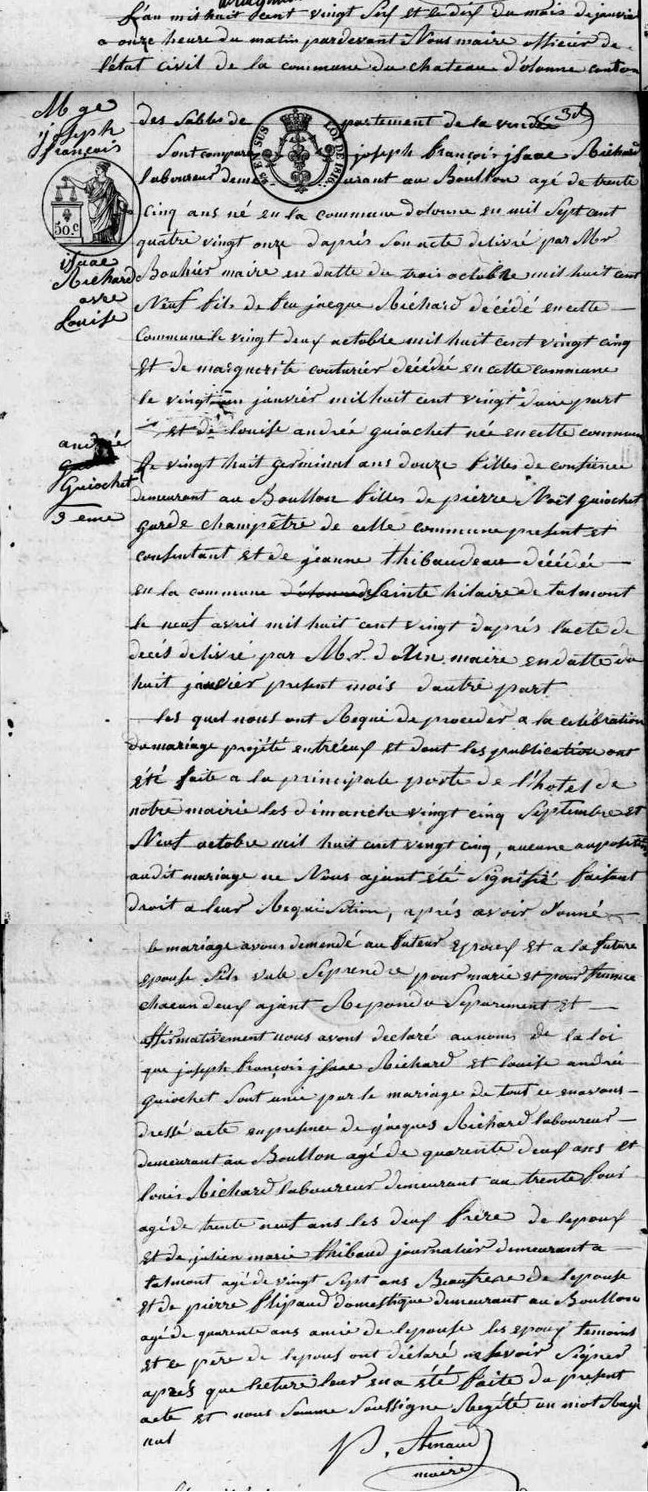 L'an mil huit cent vingt six et le dix du mois de janvier
a onze heure du matin pardevant Nous maire officier de
l'état civil de la commune du chateau d'olonne canton
des Sables de partement de la vendée 3d
Mge
joseph
françois
50.c
isaac
Richard
avec
Louise
andrée
Guiochet
3 eme
EN SUS LOI DE 1816
Sont compare joseph françois jsaac Richard
laboureur dem urant au Boullon agé de trente
Cinq ans né en la commune dolonne en mil Sept cent
quatre vingt onze daprés Son acte delivré par Mr
Bouhier maire en datte du trois octobre mil huit cent
Neuf fils de feu jacque Richard décédé en cette
Commune le vingt deux octobre mil huit cent vingt cinq
et de marguerite couturier décédée en cette commune
le vingt un janvier mil huit cent vingt d'une part
et de louise andrée guiochet née en cette commune
le vingt huit germinal ans douze filles de confience
demeurant au Boullon filles de pierre Noël guiochet
garde champêtre de cette commune present et
consentant et de jeanne thibaudeau décédée
en la commune d'olonne Sainte hilaire de talmont
le neuf avril mil huit cent vingt daprés lacte de
decés delivré par Mr. maire en datte du
huit janvier present mois dautre part
les quel nous ont Requi de proceder a la celébration
du mariage projété entréeux et dont les publication ont
été faite a la principale porte de l'hotel de
notre mairie les dimanche vingt cinq Septembre et
Neuf octobre mil huit cent vingt cinq, aucune
audit mariage ne Nous ajant été Signifié faisant
droit a leur Requisition, aprés avoir donné
le mariage avons demendé au futeur epoux et a la future
epouse Sils vule Seprendre pour marie et pour femme
chacun deux ajant Repondu Separément et
affirmativement nous avont declaré aunoms de la loi
que joseph françois jsaac Richard et louise andrée
guiochet Sont unie par le mariage de tout ce enavons
dressé acte en presence de jacques Richard laboureur
demeurant au Boullon agé de quarente deux ans et
louis Richard laboureur demeurant au trente
agé de trente neuf ans les deux frère de lepoux
et de julien marie thibaud journalier demeurant a
talmont agé de vingt Sept ans Beaufrere de lepouse
et de pierre domestique demeurant au Boullon
agé de quarente ans amie de lepouse les epoux temoins
et le père de lepous ont déclaré ne Savoir Signer
aprés que lecture leur en a été faite du present
acte et nous Somme Soussigne un mot Rayé
nul
Arnaud
maire